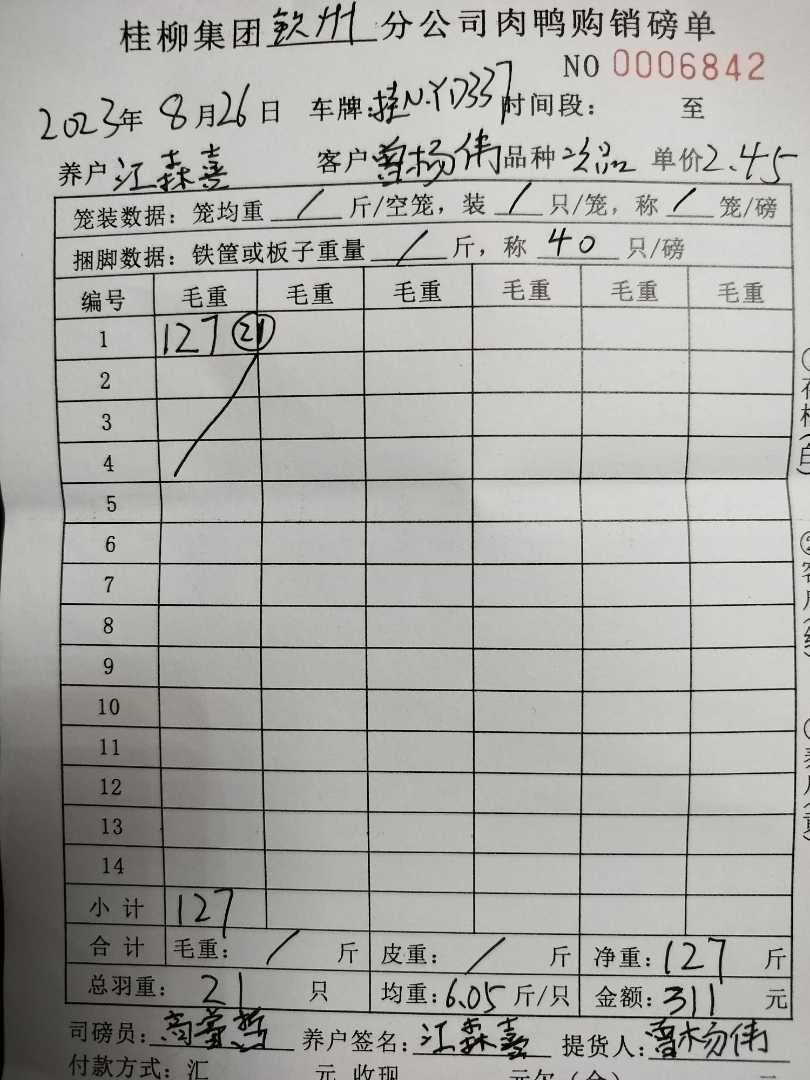 桂柳集团钦州分公司肉鸭购销磅单
NO 0006842
2023年 8月26日 车牌:桂N·YD337 时间段: 至
养户 江森喜 客户 曾杨伟 品种 次品 单价2.45
笼装数据: 笼均重 / 斤/空笼, 装 / 只/笼, 称 / 笼/磅
捆脚数据: 铁筐或板子重量 / 斤, 称 40 只/磅
编号 毛重 毛重 毛重 毛重 毛重 毛重
1 127 21
2
3
4
5
6
7
8
9
10
11
12
13
14
小计 127
合计 毛重: / 斤 皮重: / 斤 净重: 127 斤
总羽重: 21 只 均重: 6.05 斤/只 金额: 311 元
司磅员: 养户签名: 江森喜 提货人: 曾杨伟
付款方式: 汇 元 收现 元欠(余) 元